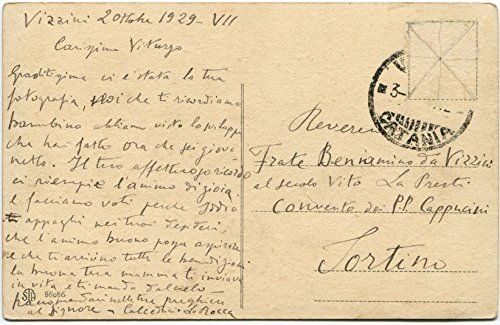 Vizzini 2 Ottobre 1929 - VII
Carissimo Vituzzo
Graditissima ci è stata la tua
fotografia, noi che ti ricordiamo
bambino abbiamo visto lo sviluppo
che hai fatto ora che sei giova
netto. Il tuo affettuoso ricordo
ci riempie l'animo di gioia
e facciamo voti perché Iddio
ti appaghi nei tuoi desideri,
che l'animo buono possa aspirare
e che ti arrivino tutte le benedizioni
la buona tua mamma ti inviava
in vita e ti manda dal cielo
raccomandaci nelle tue preghiere
al Signore - La Rocca
STA 86686
CATANIA
Reveren
Frate Benniamino da Vizzini
al secolo Vito La Presti
Convento dei P.P. Cappucini
Sortino